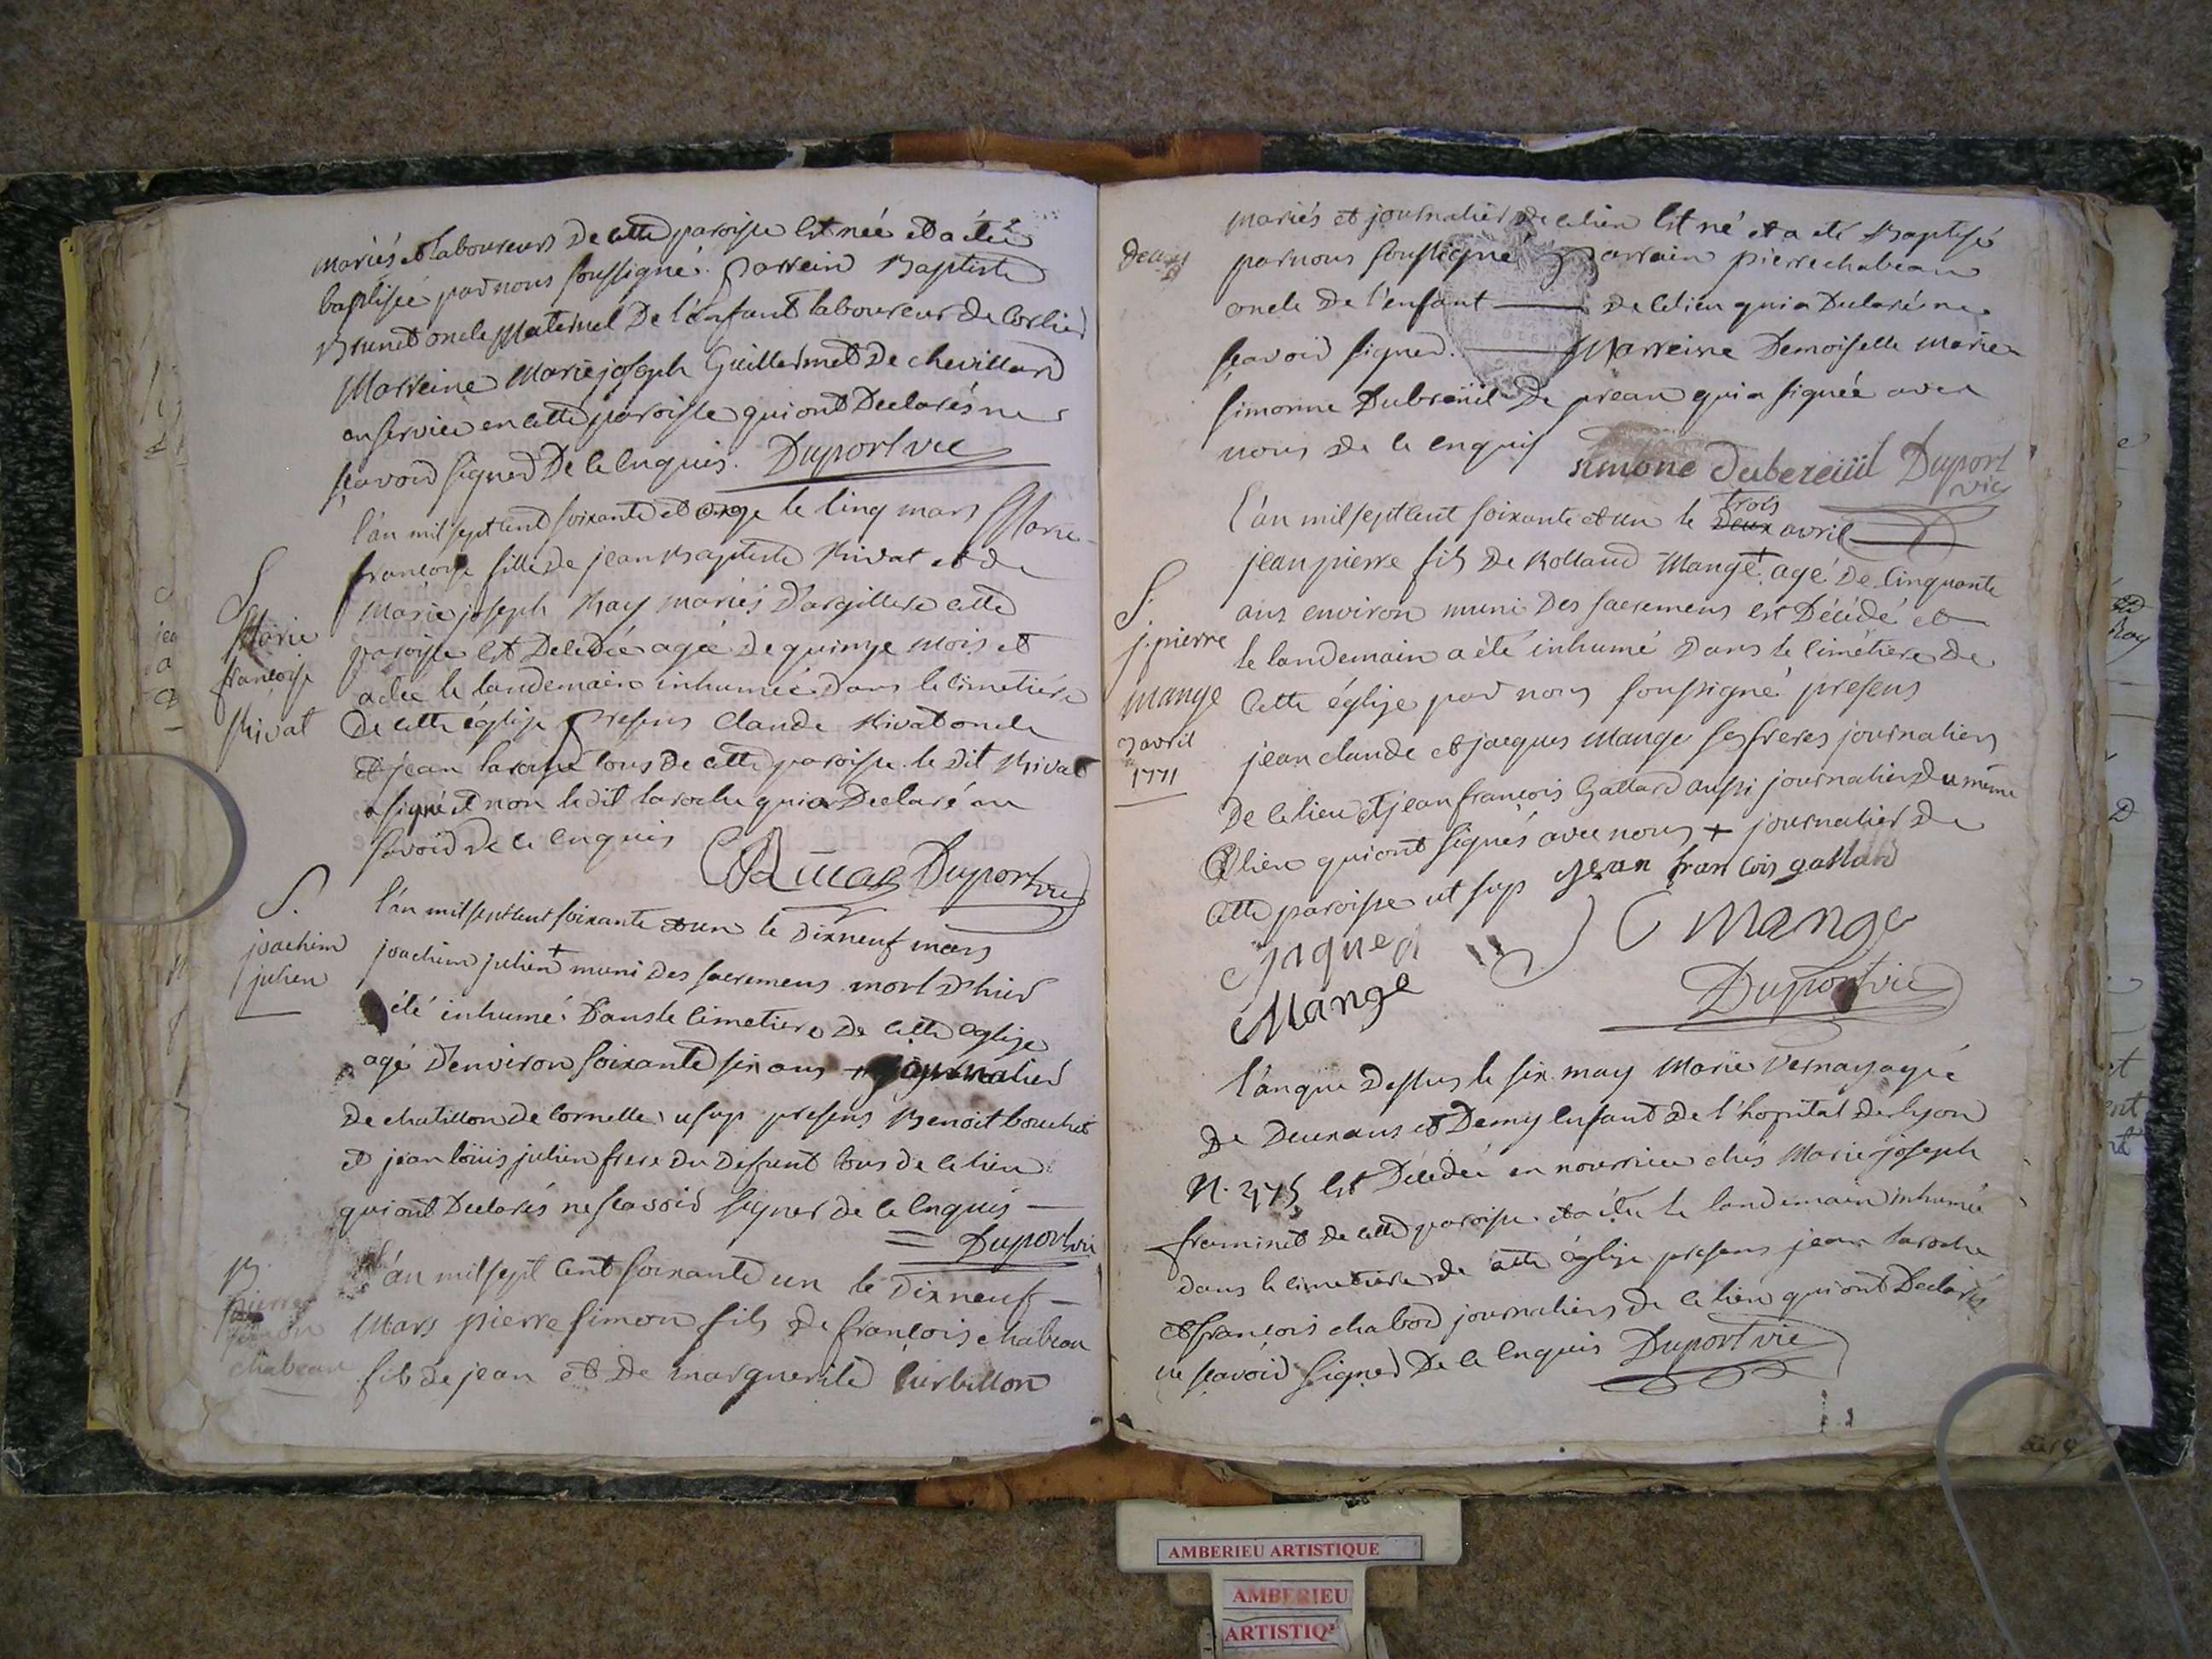 mariés et laboureurs De cette paroisse Est née et a étée
baptisée par nous soussigné. Parrein Baptiste
Brunet oncle Maternel De l'enfant laboureur de Corlier
Marreine Marie joseph Guillermet De chevillard
en service en cette paroisse qui ont Declarés ne
sçavoir signer De ce Enquis. Duport vic
l'an mil sept cent soixante et onze le cinq mars Marie
françoise fille de jean Baptiste Rivat et de
Marie joseph Ray mariés D'argillere cette
paroisse Est Decedée agée De quinze mois et
a étée le landemain inhumée Dans le Cimetiére
De cette église Presens Claude Rivat oncle
et jean laroche tous De cette paroisse le dit Rivat
a signé et non le dit laroche qui a Declaré ne
savoir de ce enquis
C Rivat Duport vic
S
Marie
françoise
Rivat
l'an mil sept cent soixante et un le Dixneuf mars
joachim julien + muni Des sacremens mort D'hier
été inhumé Dans le Cimetiere De cette Eglise
agé D'environ soixante six ans + journalier
De chatillon De Cornelle ut sup presens Benoit bouchet
et jean loüis julien frere Du Defunt tous de ce lieu
qui ont Declarés ne scavoir signer de ce Enquis
Duport vic
S.
joachim
julien
l'an mil sept Cent soixante un le Dixneuf
Mars pierre simeon fils De françois chabeau
fils de jean et De marguerite Curbillon
B.
pierre
simeon
chabeau
mariés et journalier De ce lieu Est né et a eté Baptisé
par nous soussigné Parrain pierre chabeau
oncle De l'enfant De ce lieu qui a Declaré ne
scavoir signer. Marreine Demoiselle Marie
simonne Dubreüil De prean qui a signée avec
nous De ce Enquis simone dubereiiil Duport
vic
l'an mil sept cent soixante et un le trois
Deux avril
jean pierre fils De Rolland Mange + agé De Cinquante
ans environ muni Des sacremens est Décédé et
le landemain a été inhumé Dans le Cimétiere De
Cette église par nous soussigné presens
jean claude et jacques Mange ses freres journaliers
De ce lieu et jean françois Gallard aussi journalier Du même
lieu qui ont signés avec nous + journalier De
Cette paroisse ut sup jean fran cois gallard
jaques
Mange
J C Mange
Duport vic
S.
j. pierre
Mange
3 avril
1771
l'an que Dessus le six may Marie Vernay agée
De Deux ans et Demy Enfant De l'hopital De lyon
N. 2775 Est Décédée en nourrice chés Marie joseph
framinet De cette paroisse et a étée le landemain inhumée
Dans le Cimetiere De cette église presens jean laroche
et françois chabod journaliers De ce lieu qui ont Declarés
ne scavoir signer De ce Enquis Duport vic
AMBERIEU ARTISTIQUE
AMBERIEU
ARTISTIQ